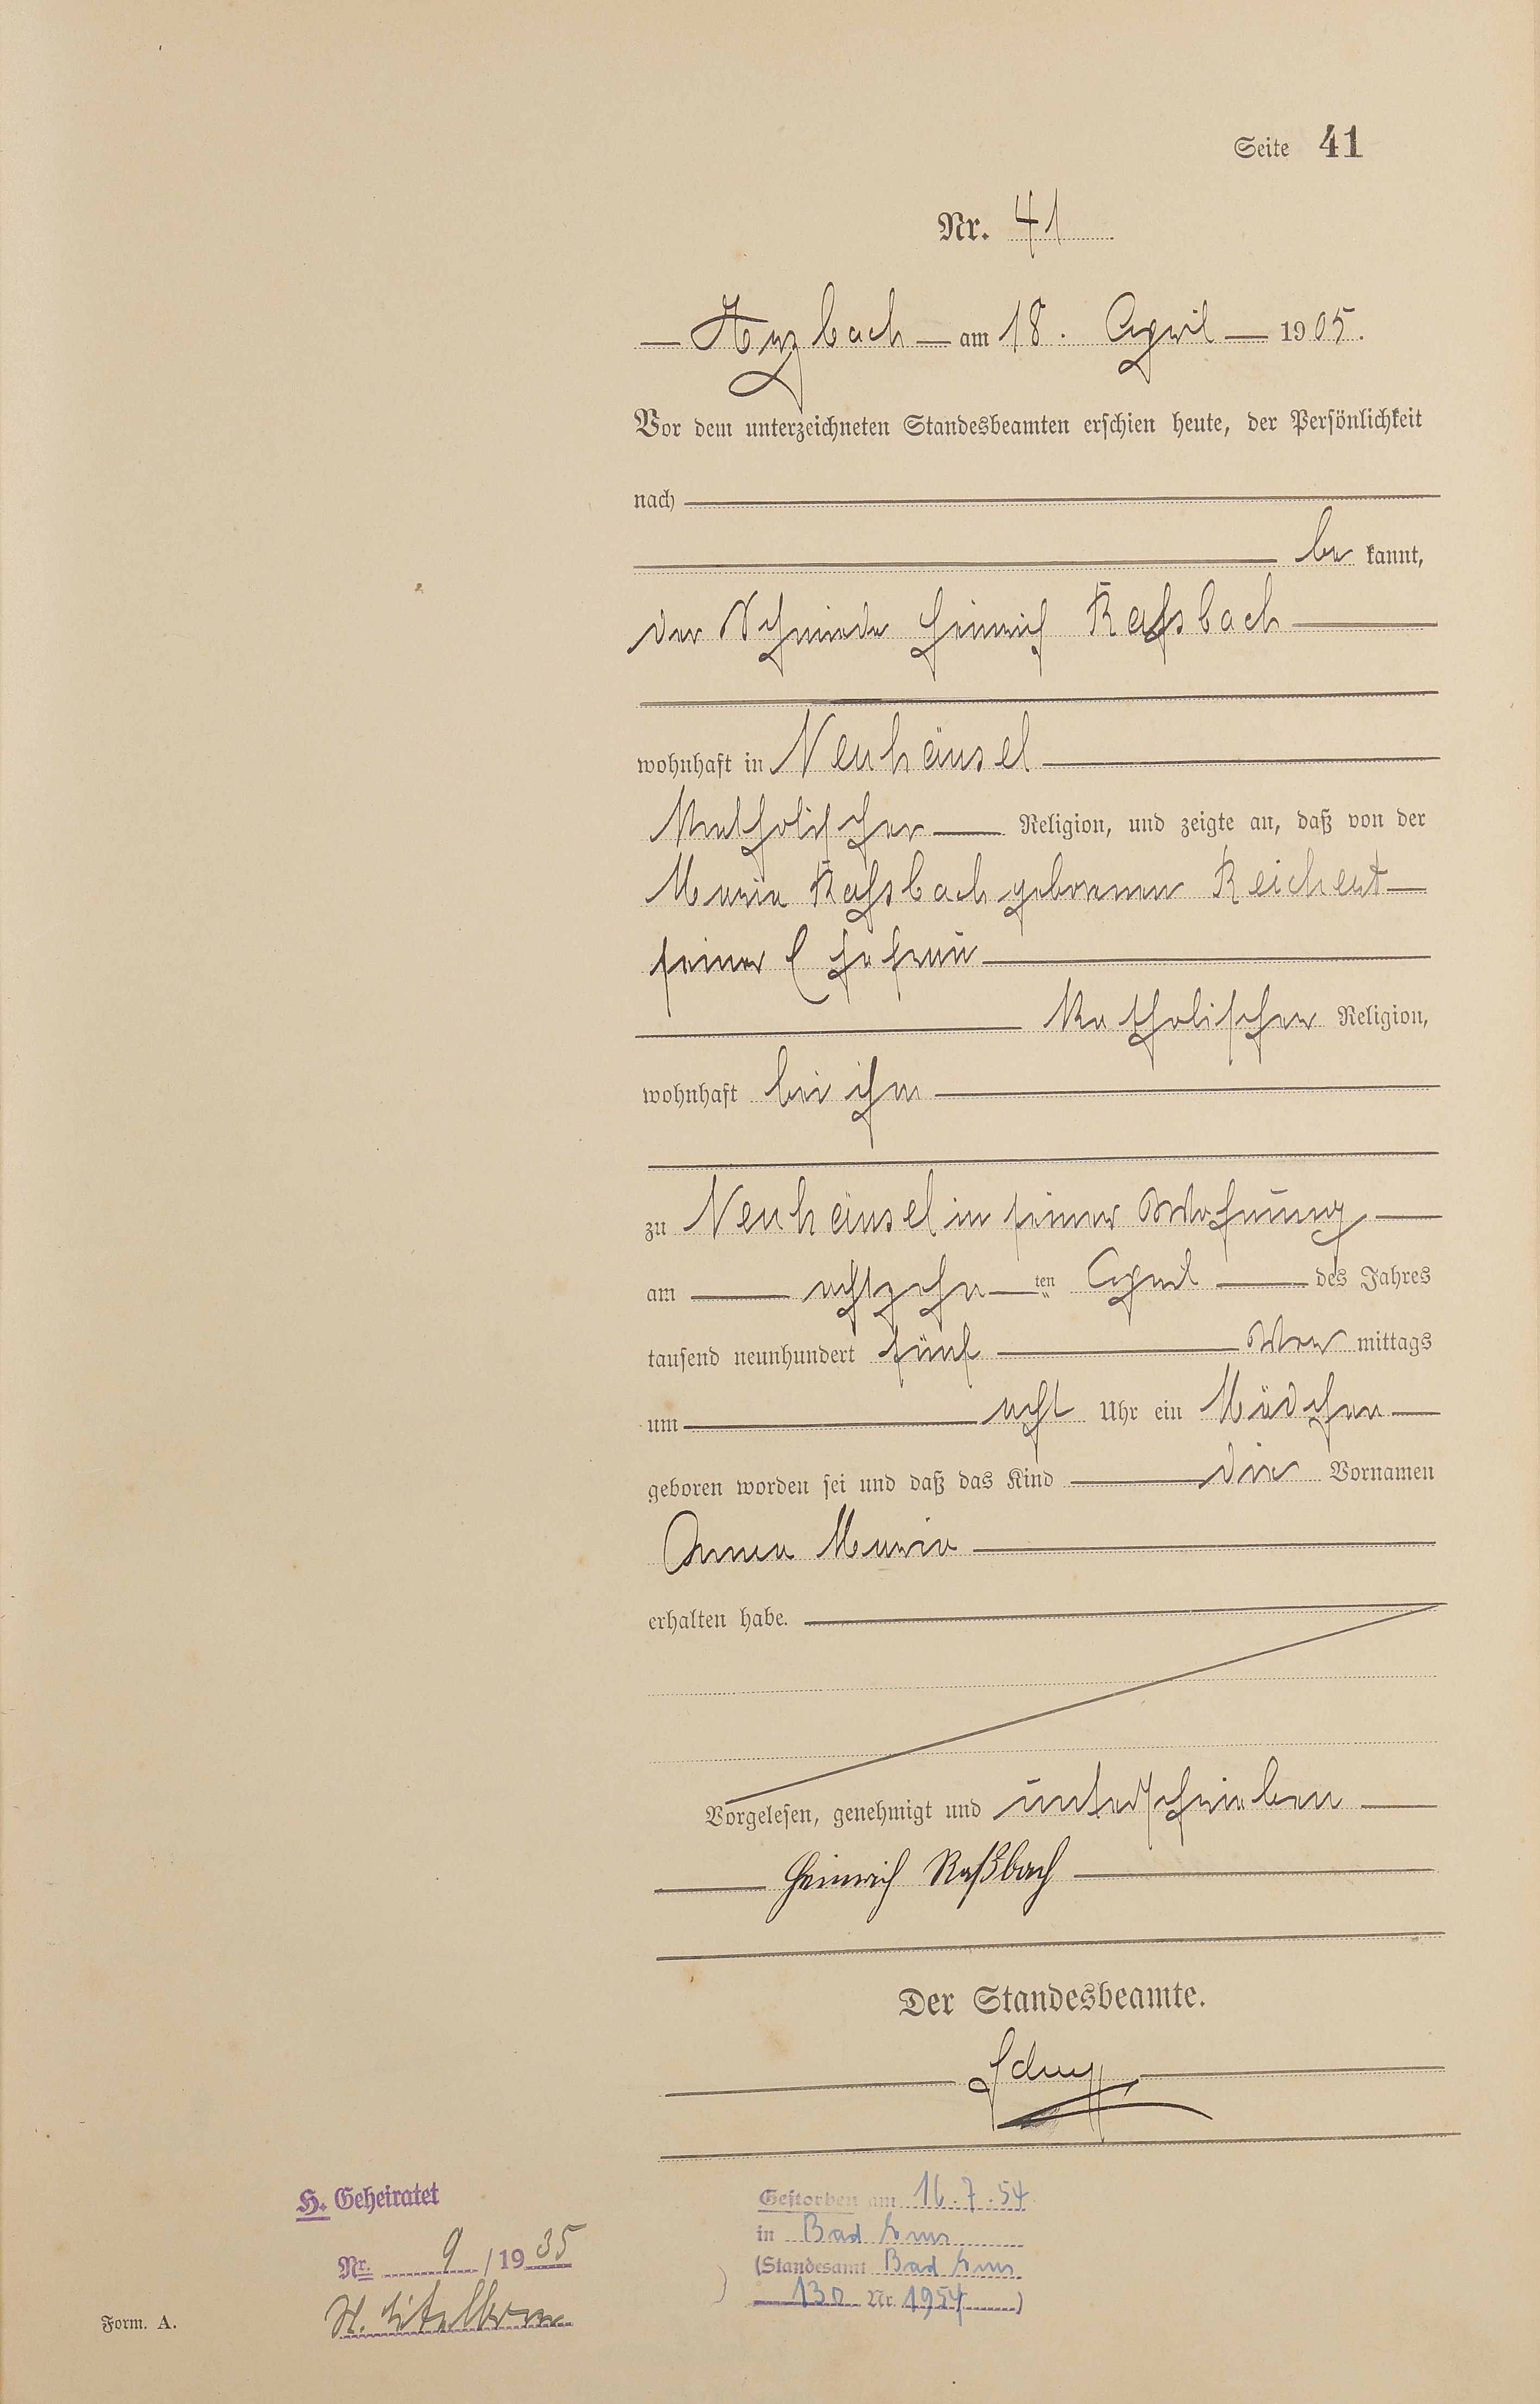 Seite 41
Nr. 41
Arzbach am 18. April 1905.
Vor dem unterzeichneten Standesbeamten erschien heute, der Persönlichkeit
nach
be kannt,
der Schmiede Heinrich Raßbach
wohnhaft in Neuhäusel
katholischer Religion, und zeigte an, daß von der
Maria Raßbach geborenen Reichert
seiner Ehefrau
katholischer Religion,
wohnhaft bei ihm
zu Neuhäusel in seiner Wohnung
am achtzehn ten April des Jahres
tausend neunhundert fünf Vor mittags
um acht Uhr ein Mädchen
geboren worden sei und daß das Kind die Vornamen
Anna Maria
erhalten habe.
Vorgelesen, genehmigt und unterschrieben
Heinrich Raßbach
Der Standesbeamte.
H. Geheiratet
Nr. 9 / 1935
St. Eitelborn
Gestorben am 16.7.54
in Bad Ems
(Standesamt Bad Ems
130 Nr. 1954)
Form. A.